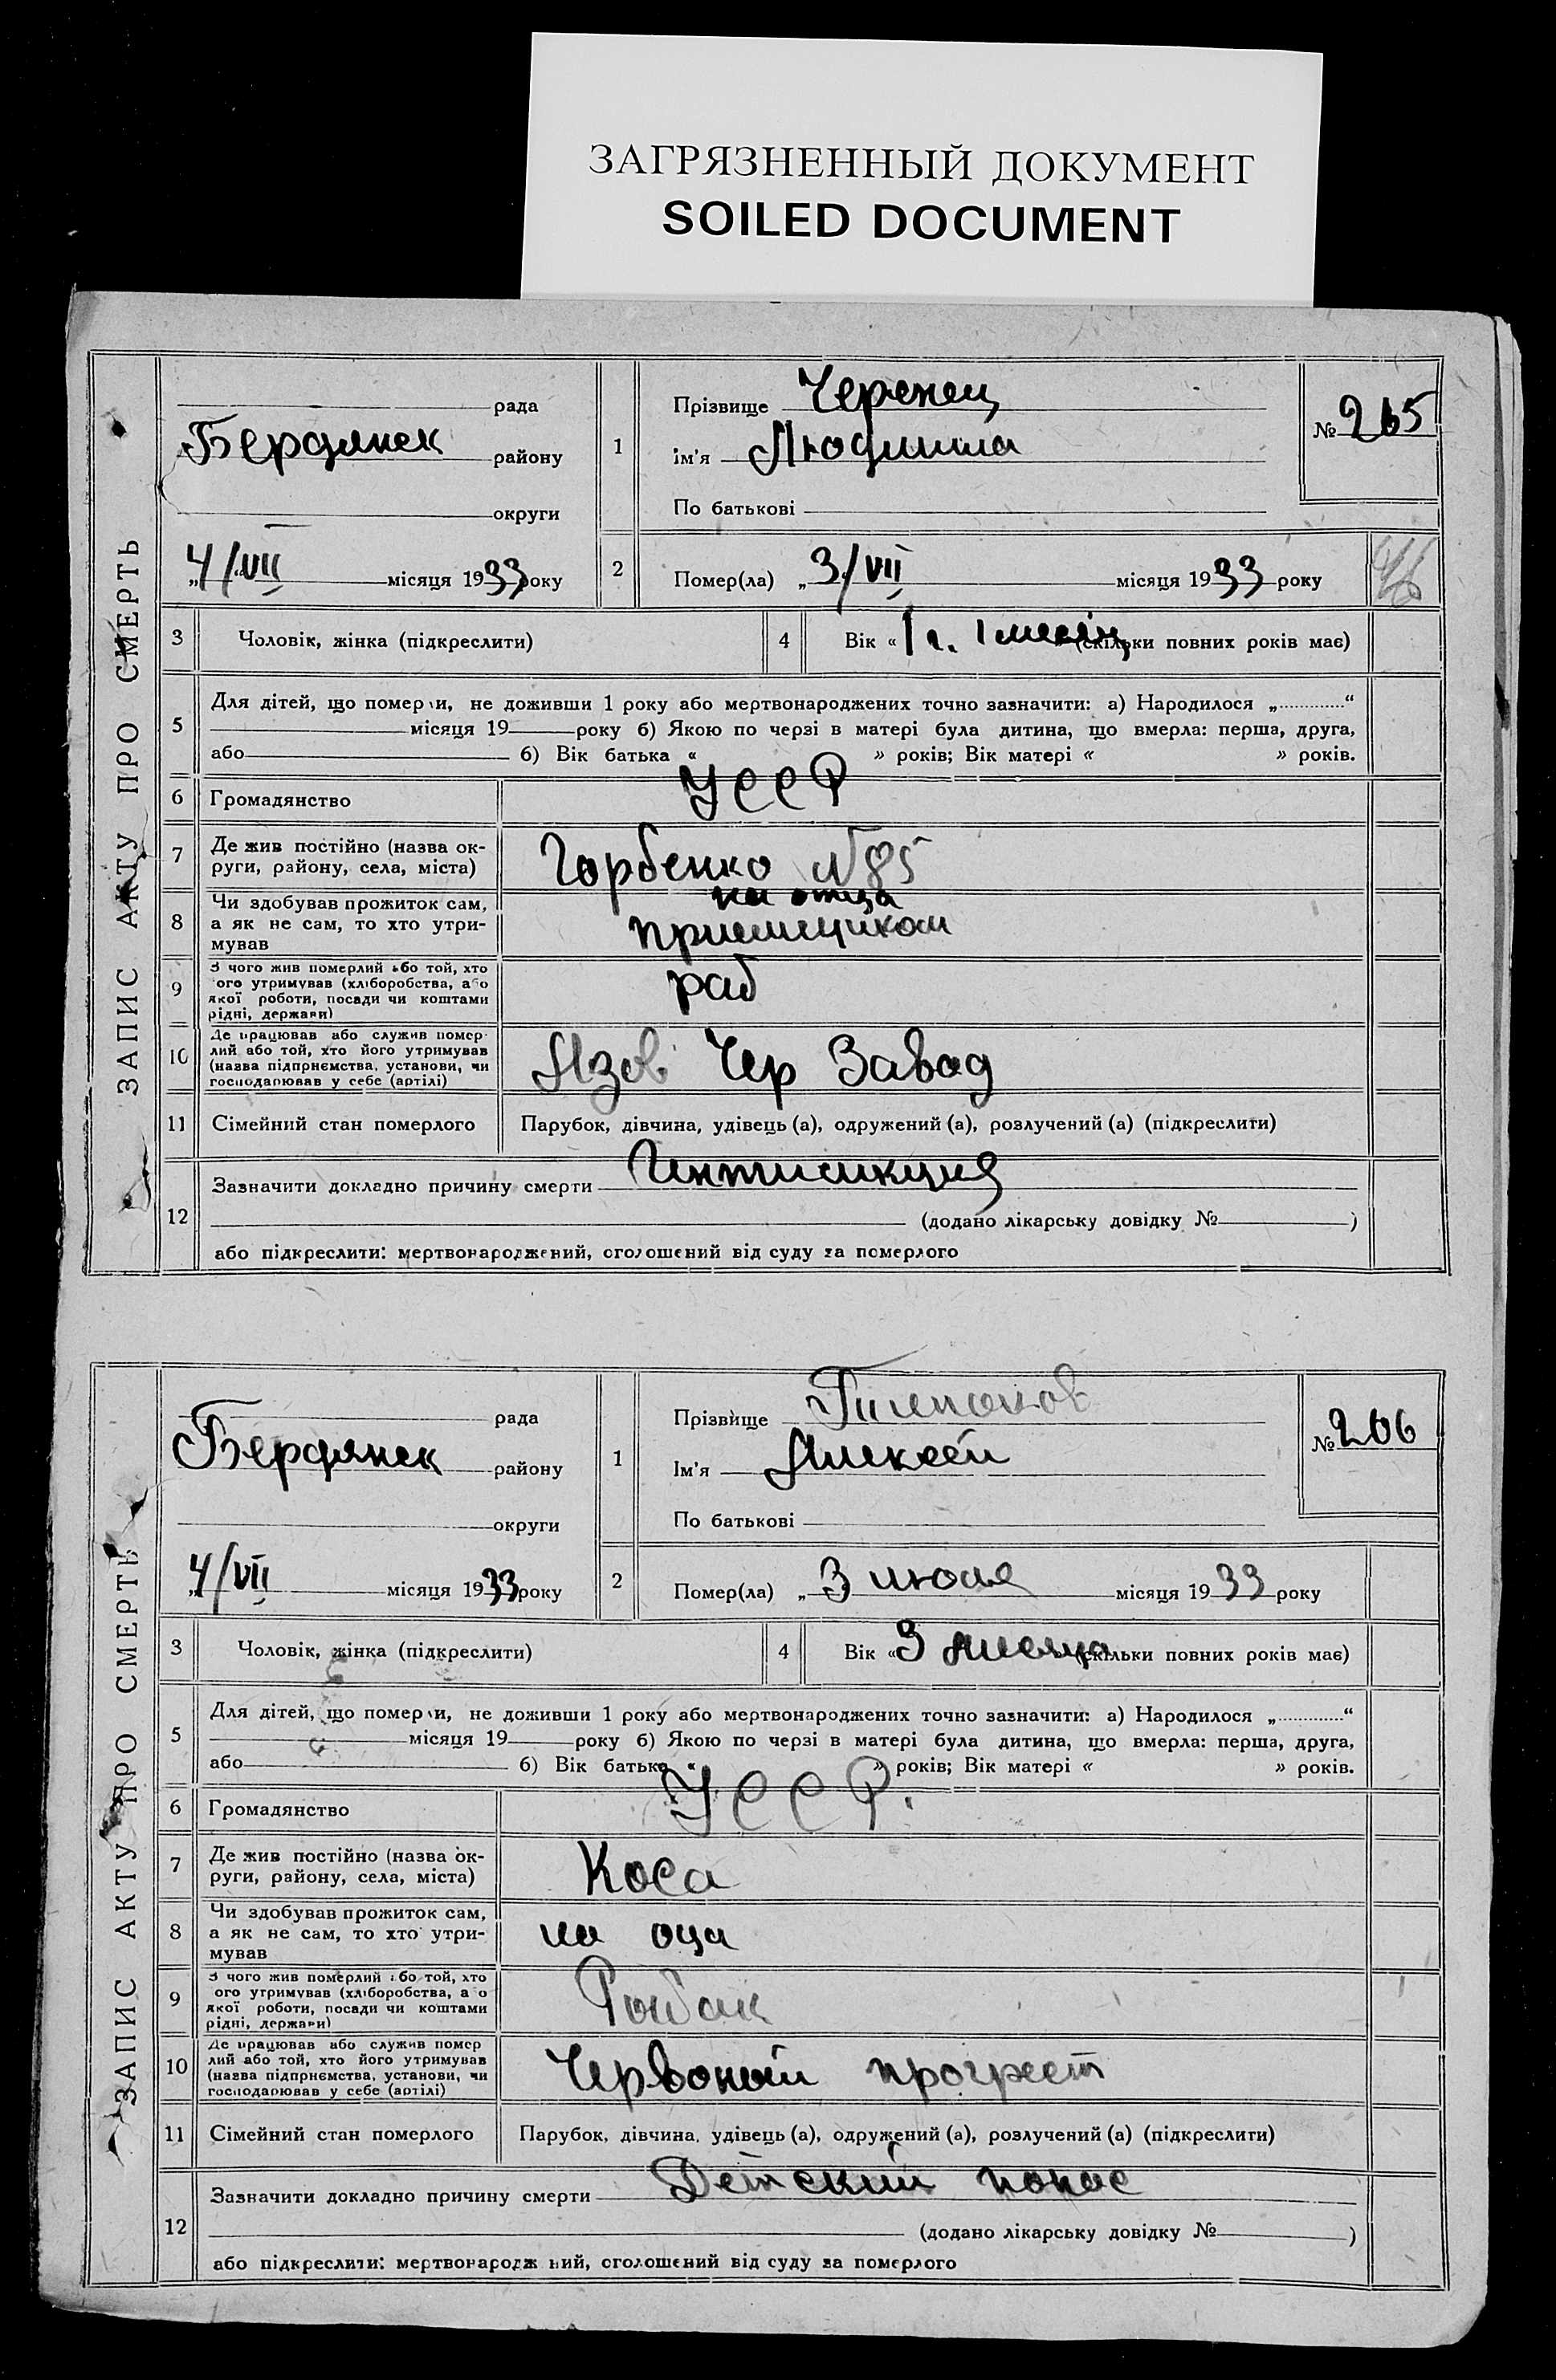 ЗАГРЯЗНЕННЫЙ ДОКУМЕНТ
SOILED DOCUMENT
ЗАПИС АКТУ ПРО СМЕРТЬ
рада
Бердянск району
округи
„4/VII місяця 1933 року
1
Прізвище
ім'я Людмила
По батькові
№ 265
2
Помер(ла) „3/VII місяця 1933 року
3
Чоловік, жінка (підкреслити)
4
Вік « 1 г. 1 месяц (скільки повних років має)
5
Для дітей, що померли, не доживши 1 року або мертвонароджених точно зазначити: а) Народилося „ “
місяця 19 року б) Якою по черзі в матері була дитина, що вмерла: перша, друга,
або б) Вік батька « » років; Вік матері « » років.
6
Громадянство
УССР
7
Де жив постійно (назва ок-
руги, району, села, міста)
Горбенко N 85
8
Чи здобував прожиток сам,
а як не сам, то хто утри-
мував
на отца
приемщиком
9
З чого жив померлий або той, хто
ого утримував (хліборобства, або
якої роботи, посади чи коштами
рідні, держави)
раб
10
Де працював або служив помер-
лий або той, хто його утримував
(назва підприємства, установи, чи
господарював у себе (артілі)
Азов Чер Завод
11
Сімейний стан померлого
Парубок, дівчина, удівець (а), одружений (а), розлучений (а) (підкреслити)
12
Зазначити докладно причину смерти
(додано лікарську довідку № )
або підкреслити: мертвонароджений, оголошений від суду за померлого
ЗАПИС АКТУ ПРО СМЕРТЬ
рада
Бердянск району
округи
„4/VII місяця 1933 року
1
Прізвище
Ім'я Алексей
По батькові
№ 266
2
Помер(ла) „3 июля місяця 1933 року
3
Чоловік, жінка (підкреслити)
4
Вік « 3 месяца (скільки повних років має)
5
Для дітей, що померли, не доживши 1 року або мертвонароджених точно зазначити: а) Народилося „ “
місяця 19 року б) Якою по черзі в матері була дитина, що вмерла: перша, друга,
або б) Вік батька « » років; Вік матері « » років.
6
Громадянство
УССР.
7
Де жив постійно (назва ок-
руги, району, села, міста)
Коса
8
Чи здобував прожиток сам,
а як не сам, то хто утри-
мував
на оца
9
З чого жив померлий або той, хто
ого утримував (хліборобства, а о
якої роботи, посади чи коштами
рідні, держави)
Рыбак
10
Де працював або служив помер
лий або той, хто його утримував
(назва підприємства, установи, чи
господарював у себе (артілі)
Червоный прогрест
11
Сімейний стан померлого
Парубок, дівчина, удівець (а), одружений (а), розлучений (а) (підкреслити)
12
Зазначити докладно причину смерти Детский понос
(додано лікарську довідку № )
або підкреслити: мертвонародж ний, оголошений від суду за померлого